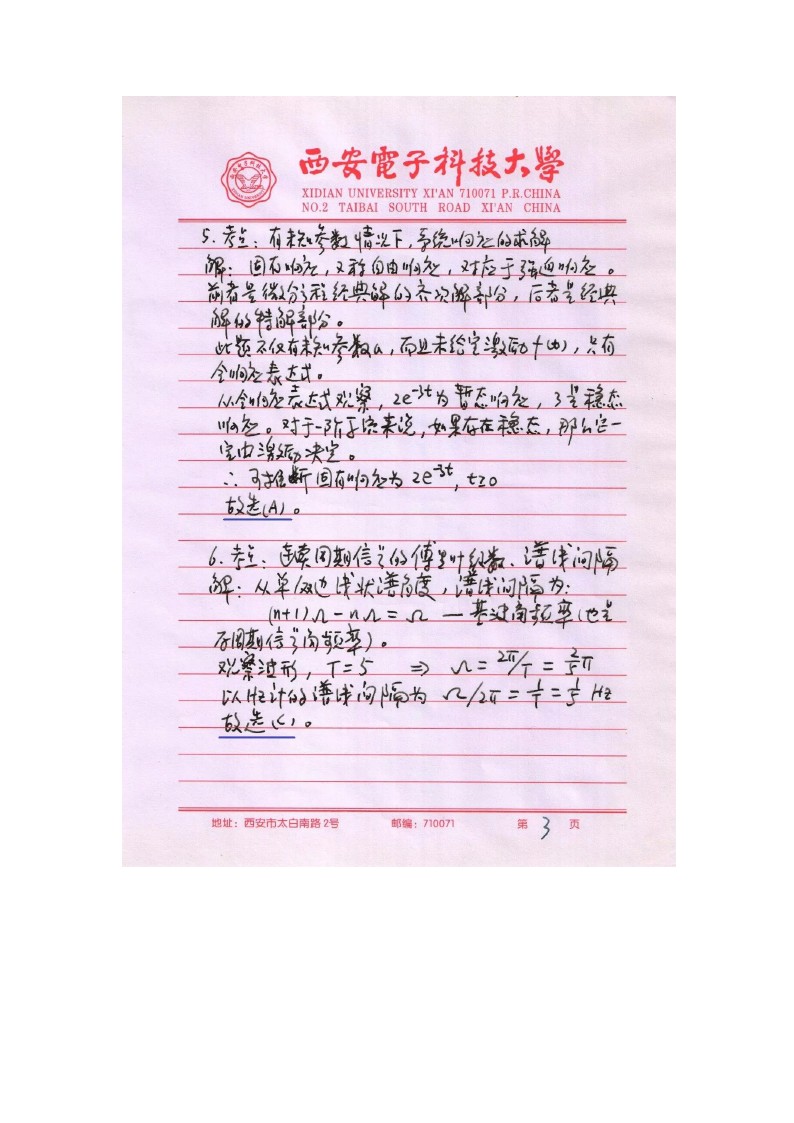 西安電子科技大學
XIDIAN UNIVERSITY XI'AN 710071 P.R.CHINA
NO.2 TAIBAI SOUTH ROAD XI'AN CHINA
5. 考点：有未知参数情况下，系统响应的求解
解：固有响应，又称自由响应，对应于强迫响应。
前者是微分方程经典解的齐次解部分，后者是经典
解的特解部分。
此题不仅有未知参数a，而且未给定激励f(t)，只有
全响应表达式。
从全响应表达式观察，2e^{-3t}为暂态响应，3是稳态
响应。对于一阶系统来说，如果存在稳态，那么它一
定由激励决定。
∴ 可推断固有响应为 2e^{-3t}, t≥0
故选(A)。
6. 考点：连续周期信号的傅里叶级数、谱线间隔
解：从单/双边线状谱角度，谱线间隔为：
(n+1)Ω − nΩ = Ω — 基波角频率(也是
原周期信号角频率)。
观察波形，T=5 ⇒ Ω = 2π/T = 2/5 π
以Hz计的谱线间隔为 Ω/2π = 1/T = 1/5 Hz
故选(C)。
地址：西安市太白南路2号 邮编：710071 第 3 页